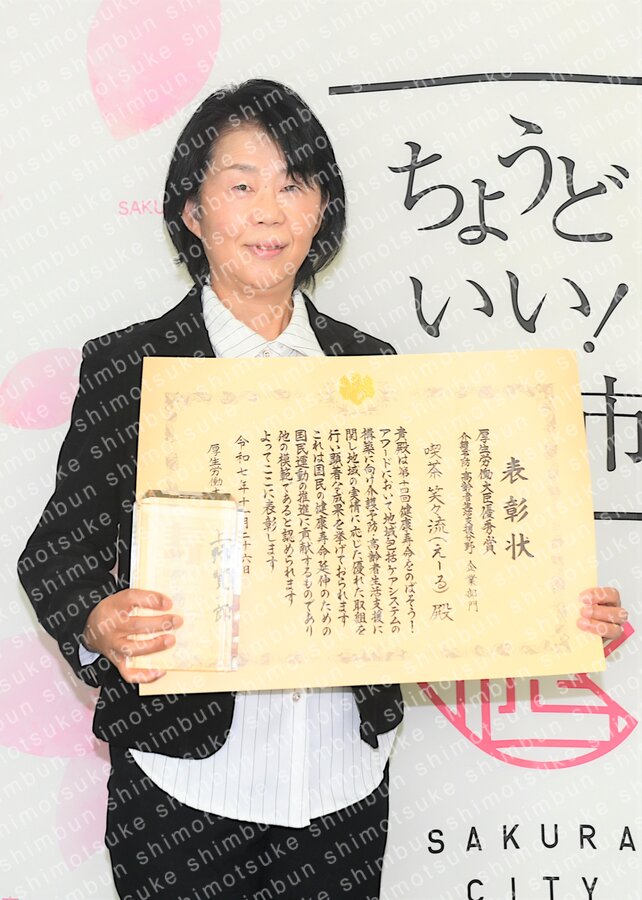 ちょうど
いい!
市
SAKURA
CITY
SAKU
表彰状
厚生労働大臣優秀賞
介護予防・高齢者生活支援分野 企業部門
喫茶 笑々流(えーる) 殿
貴殿は第十四回健康寿命をのばそう!
アワードにおいて地域包括ケアシステムの
構築に向け介護予防・高齢者生活支援に
関し地域の実情に応じた優れた取組を
行い顕著な成果を挙げておられます
これは国民の健康寿命延伸のための
国民運動の推進に貢献するものであり
他の模範であると認められます
よってここに表彰します
令和七年十一月二十六日
厚生労働
shimotsuke shimbun